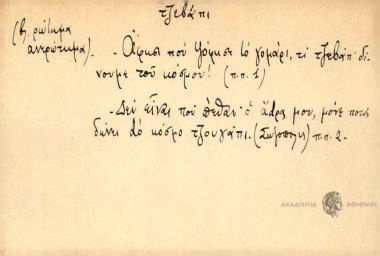 τζεβάπι
(βλ. ρώτημα
ανερώτημα).
- Άφησι πού ψόφησε τό γομάρι, τί τζεβάπ' δί-
νουμε τοῦ κόσμου! (π.π. 1)
- Δεν εἶναι πού πέθαν' ὁ ἄδρας μου, μόνε ποιός
δώνει τό κόσμο τζουγάπι. π.π. 2.
ΑΚΑΔΗΜΙΑ ΑΘΗΝΩΝ